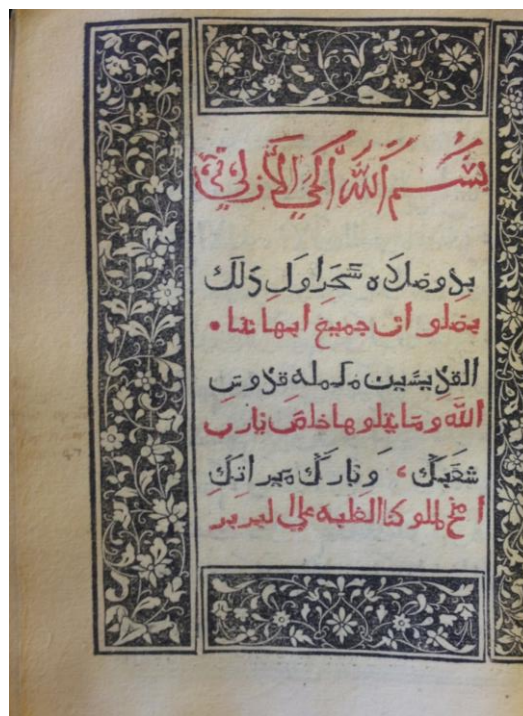 بسم الله الحي الأزلي
بدو صلاه سحر اول ذلك
بصلوات جميع ابهاتنا •
القديسين مكمله قدوس
الله وما يتلوها خلص يارب
شعبك، وبارك ميراتك
امنح لملوكنا الغلبه علي لبربر